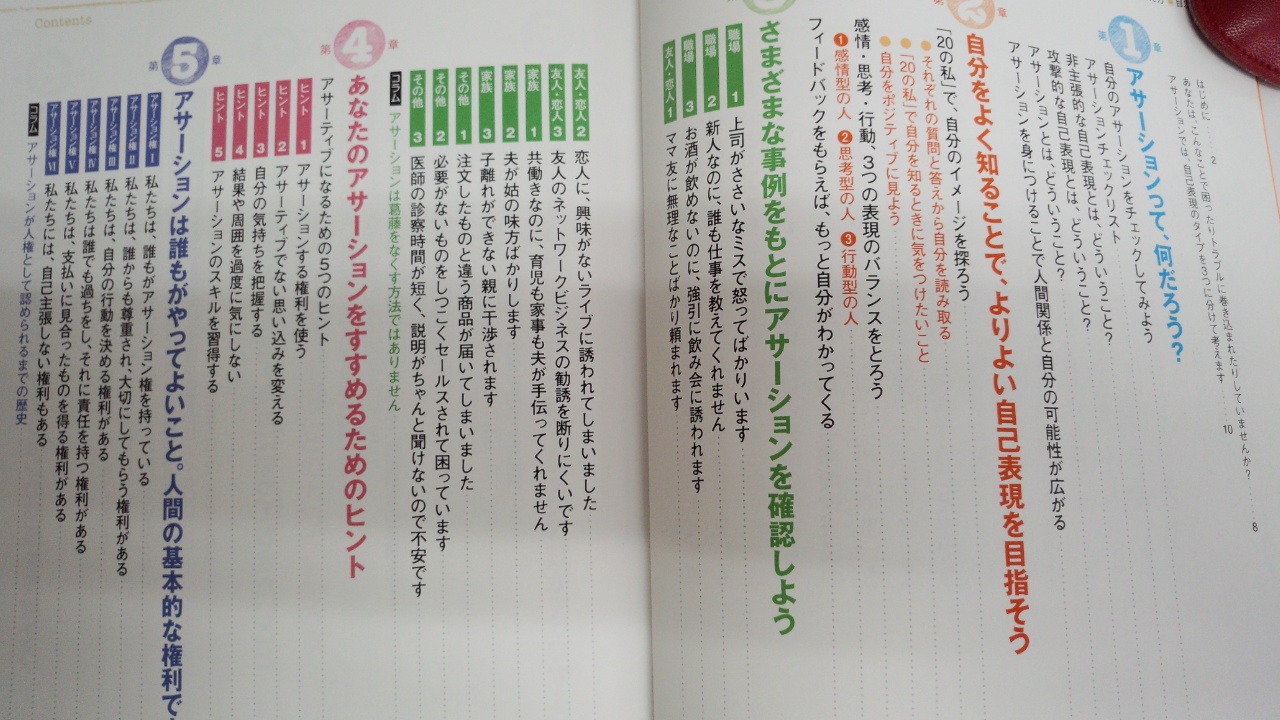 はじめに 2
あなたは、こんなことで困ったりトラブルに巻き込まれたりしていませんか? 8
アサーションでは、自己表現のタイプを3つに分けて考えます 10
第1章 アサーションって、何だろう?
自分のアサーションをチェックしてみよう
アサーションチェックリスト
非主張的な自己表現とは、どういうこと?
攻撃的な自己表現とは、どういうこと?
アサーションとは、どういうこと?
アサーションを身につけることで人間関係と自分の可能性が広がる
第2章 自分をよく知ることで、よりよい自己表現を目指そう
「20の私」で、自分のイメージを探ろう
● それぞれの質問と答えから自分を読み取る
● 「20の私」で自分を知るときに気をつけたいこと
● 自分をポジティブに見よう
感情・思考・行動、3つの表現のバランスをとろう
❶ 感情型の人 ❷ 思考型の人 ❸ 行動型の人
フィードバックをもらえば、もっと自分がわかってくる
さまざまな事例をもとにアサーションを確認しよう
職場 1 上司がささいなミスで怒ってばかりいます
職場 2 新人なのに、誰も仕事を教えてくれません
職場 3 お酒が飲めないのに、強引に飲み会に誘われます
友人・恋人 1 ママ友に無理なことばかり頼まれます
友人・恋人 2 恋人に、興味がないライブに誘われてしまいました
友人・恋人 3 友人のネットワークビジネスの勧誘を断りにくいです
家族 1 共働きなのに、育児も家事も夫が手伝ってくれません
家族 2 夫が姑の味方ばかりします
家族 3 子離れができない親に干渉されます
その他 1 注文したものと違う商品が届いてしまいました
その他 2 必要がないものをしつこくセールスされて困っています
その他 3 医師の診察時間が短く、説明がちゃんと聞けないので不安です
コラム アサーションは葛藤をなくす方法ではありません
第4章 あなたのアサーションをすすめるためのヒント
アサーティブになるための5つのヒント
ヒント 1 アサーションする権利を使う
ヒント 2 アサーティブでない思い込みを変える
ヒント 3 自分の気持ちを把握する
ヒント 4 結果や周囲を過度に気にしない
ヒント 5 アサーションのスキルを習得する
第5章 アサーションは誰もがやってよいこと。人間の基本的な権利で
アサーション権 Ⅰ 私たちは、誰もがアサーション権を持っている
アサーション権 Ⅱ 私たちは、誰からも尊重され、大切にしてもらう権利がある
アサーション権 Ⅲ 私たちは、自分の行動を決める権利がある
アサーション権 Ⅳ 私たちは誰でも過ちをし、それに責任を持つ権利がある
アサーション権 Ⅴ 私たちは、支払いに見合ったものを得る権利がある
アサーション権 Ⅵ 私たちには、自己主張しない権利もある
コラム アサーションが人権として認められるまでの歴史
Contents